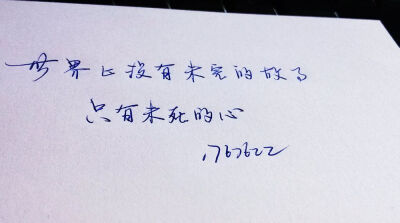 世界上没有未完的故事
只有未死的心